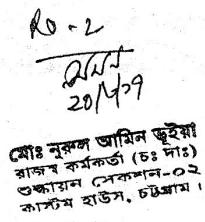 RO-2
মোঃ নুরুল আমিন ভূইয়া
রাজস্ব কর্মকর্তা (চঃ দাঃ)
শুল্কায়ন সেকশন-০২
কাস্টম হাউস, চট্টগ্রাম।